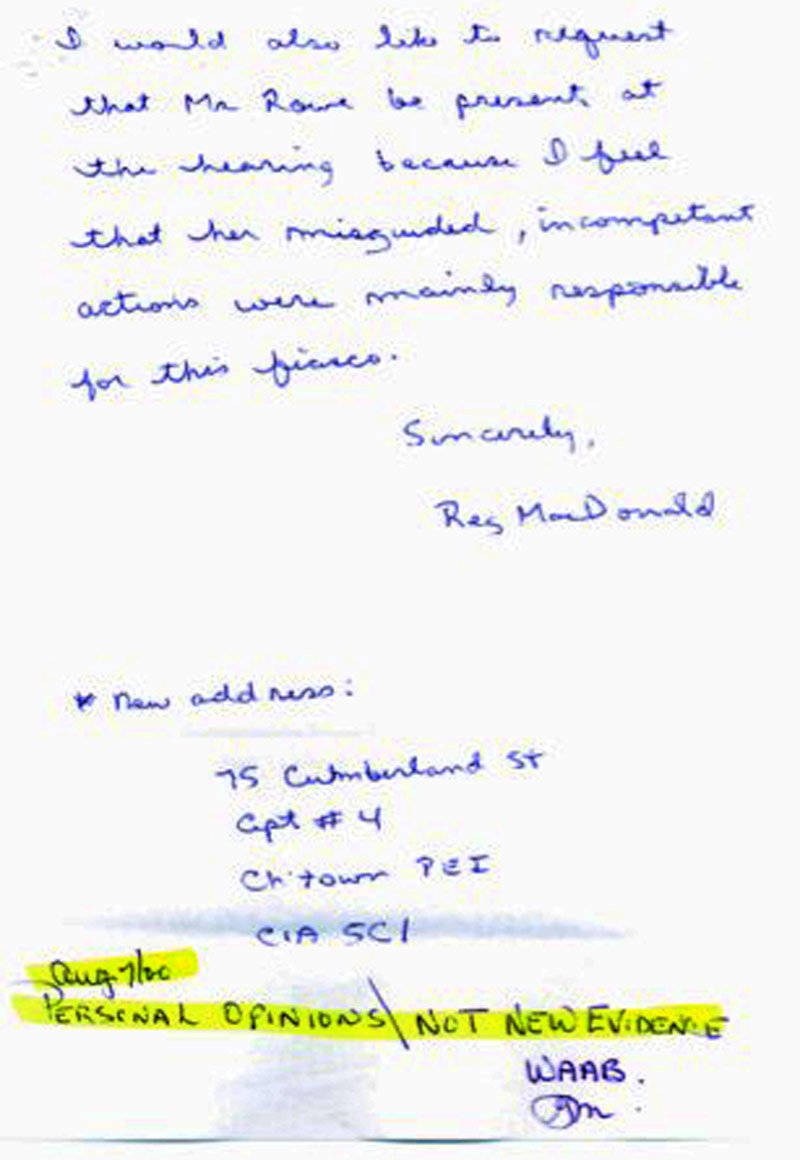 I would also like to request
that Ms Rowe be present at
the hearing because I feel
that her misguided, incompetant
actions were mainly responsible
for this fiasco.
Sincerely,
Reg MacDonald
* New address:
75 Cumberland St
Apt # 4
Ch'town PEI
C1A 5C1
Aug 7/00
PERSONAL OPINIONS \ NOT NEW EVIDENCE
WAAB.